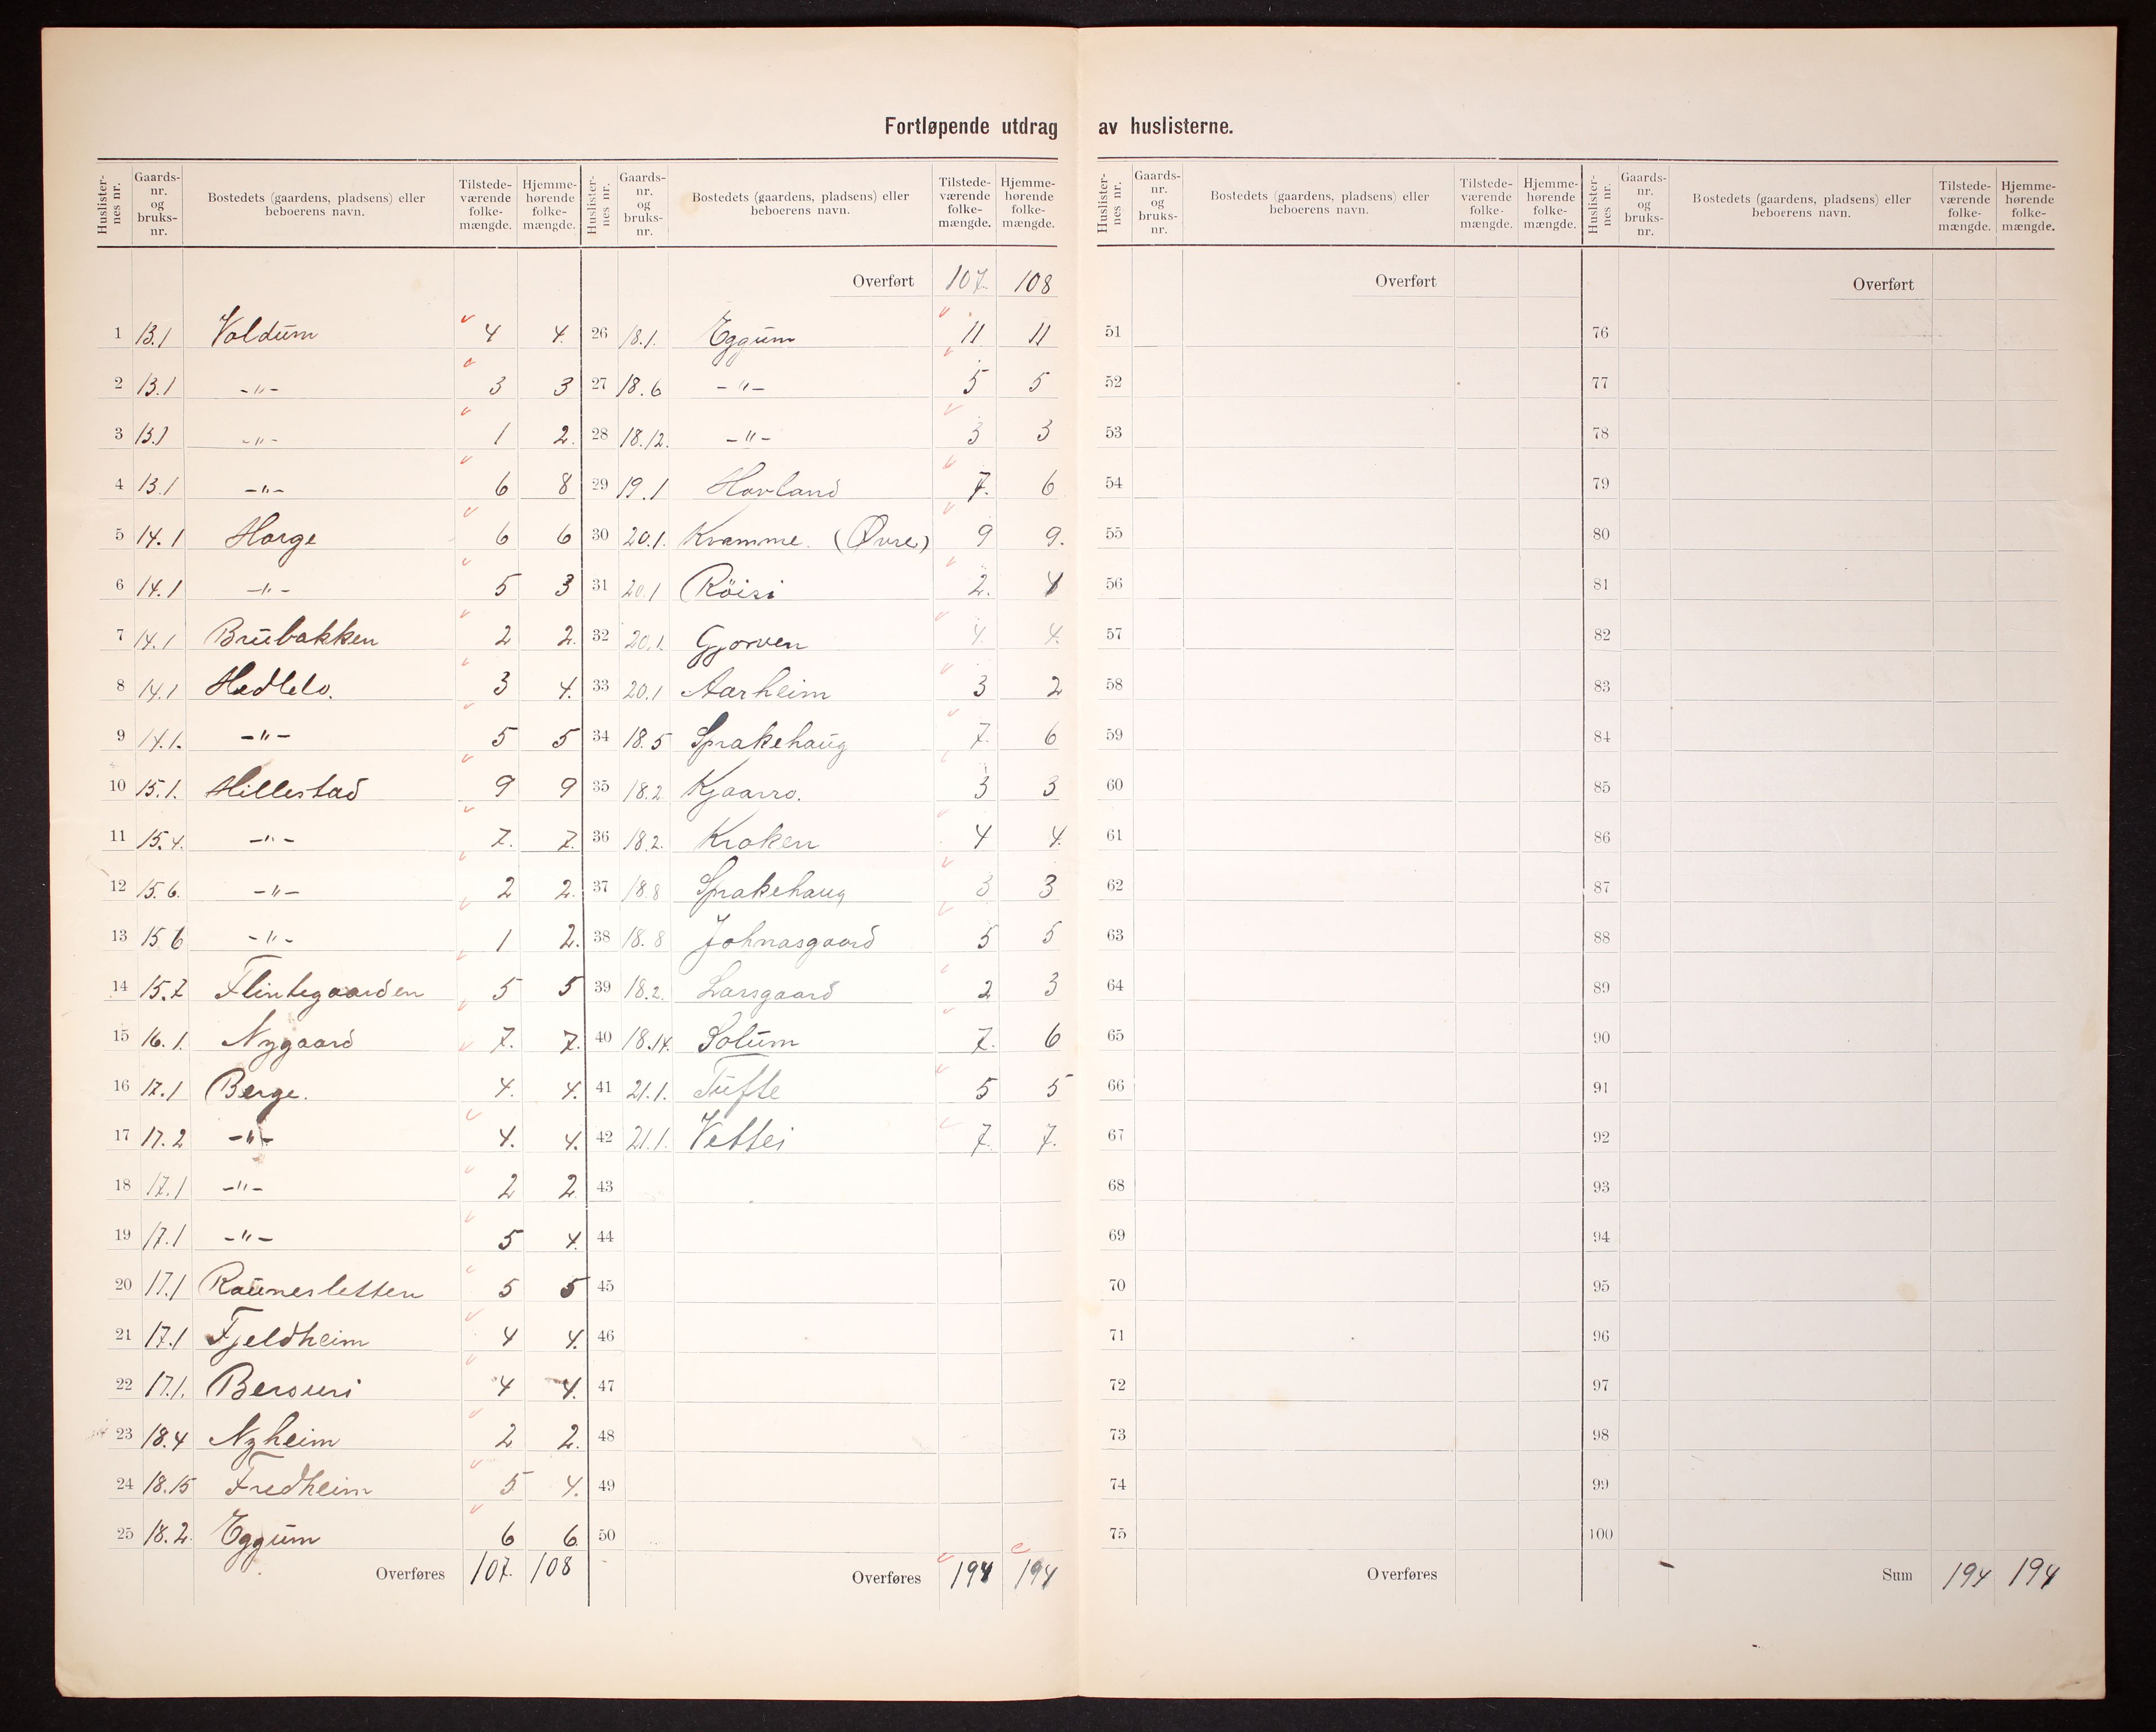 Fortløpende utdrag av huslisterne.
Huslister-nes nr. Gaards-nr. og bruks-nr. Bostedets (gaardens, pladsens) eller beboerens navn. Tilstede-værende folke-mængde. Hjemme-hørende folke-mængde.
1 13.1 Voldum 4 4.
2 13.1 -"- 3 3
3 13.1 -"- 1 2.
4 13.1 -"- 6 8
5 14.1 Horge 6 6
6 14.1 -"- 5 3
7 14.1 Brubakken 2 2.
8 14.1 3 4.
9 14.1. -"- 5 5
10 15.1. Hillestad 9 9
11 15.4. -"- 7. 7.
12 15.6. -"- 2 2.
13 15.6 -"- 1 2.
14 15.7 Flintegaarden 5 5
15 16.1. Nygaard 7. 7.
16 17.1 Berge. 4. 4.
17 17.2 -"- 4. 4.
18 17.1 -"- 2 2
19 17.1 -"- 5 4.
20 17.1 Rauneslетten 5 5
21 17.1 Fjeldheim 4 4.
22 17.1. 4 4.
23 18.4 Nyheim 2 2.
24 18.15 Fredheim 5 4.
25 18.2. Eggum 6 6
Overføres 107. 108
Huslister-nes nr. Gaards-nr. og bruks-nr. Bostedets (gaardens, pladsens) eller beboerens navn. Tilstede-værende folke-mængde. Hjemme-hørende folke-mængde.
Overført 107. 108
26 18.1. Eggum 11 11
27 18.6 -"- 5 5
28 18.12. -"- 3 3
29 19.1 Hovland 7. 6
30 20.1. Kvamme. (Øvre) 9 9.
31 20.1 Röisi 2. 4
32 20.1. Gjorven 4. 4.
33 20.1 Aarheim 3 2
34 18.5 Sprakehaug 7. 6
35 18.2 3 3
36 18.2. Kroken 4 4.
37 18.8 Sprakehaug 3 3
38 18.8 Johnasgaard 5 5
39 18.2. Larsgaard 2 3
40 18.14. Solum 7. 6
41 21.1. Tufte 5 5
42 21.1. Vettei 7. 7.
43
44
45
46
47
48
49
50
Overføres 194 194
Huslister-nes nr. Gaards-nr. og bruks-nr. Bostedets (gaardens, pladsens) eller beboerens navn. Tilstede-værende folke-mængde. Hjemme-hørende folke-mængde.
Overført
51
52
53
54
55
56
57
58
59
60
61
62
63
64
65
66
67
68
69
70
71
72
73
74
75
Overføres
Huslister-nes nr. Gaards-nr. og bruks-nr. Bostedets (gaardens, pladsens) eller beboerens navn. Tilstede-værende folke-mængde. Hjemme-hørende folke-mængde.
Overført
76
77
78
79
80
81
82
83
84
85
86
87
88
89
90
91
92
93
94
95
96
97
98
99
100
Sum 194 194